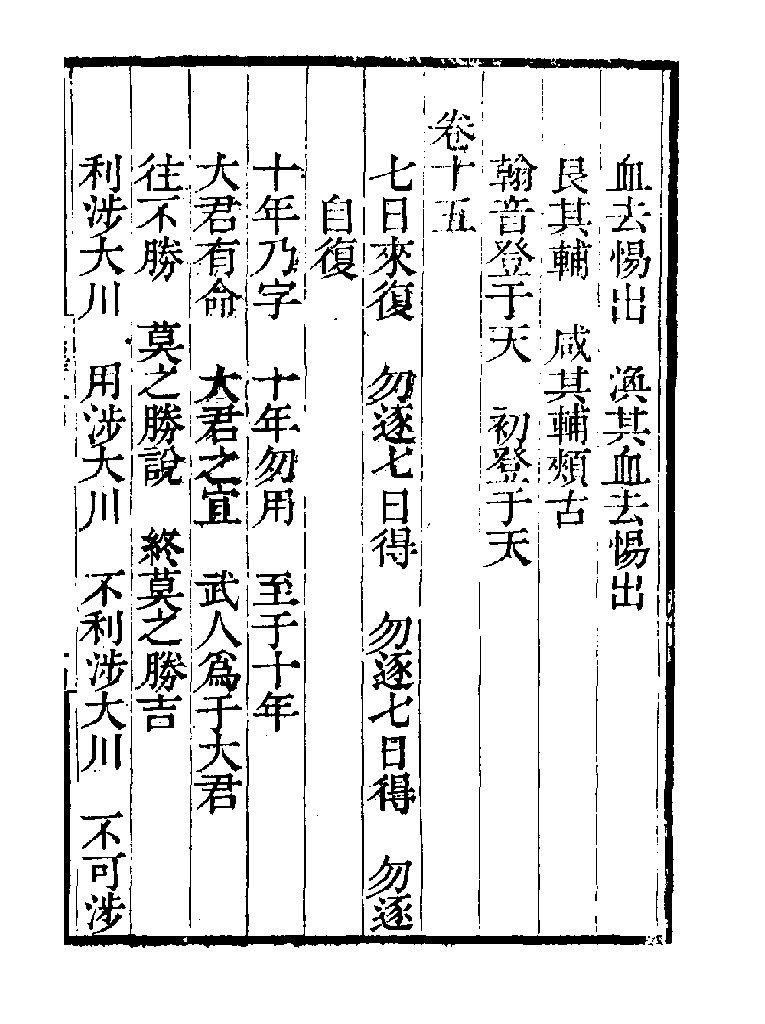 血去惕出　渙其血去惕出
艮其輔　咸其輔頰舌
翰音登于天　初登于天
卷十五
七日來復　勿逐七日得　勿逐七日得　勿逐
自復
十年乃字　十年勿用　至于十年
大君有命　大君之宜　武人爲于大君
往不勝　莫之勝說　終莫之勝吉
利涉大川　用涉大川　不利涉大川　不可涉